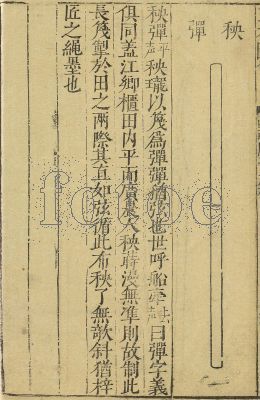 秧彈
秧彈秧壠以篾為彈彈猶弦也世呼船牽曰彈字義
俱同蓋江鄉櫃田內平而廣農人秧蒔漫無準則故制此
長篾掣於田之兩際其直如弦循此布秧了無欹斜猶梓
匠之繩墨也
fotoe